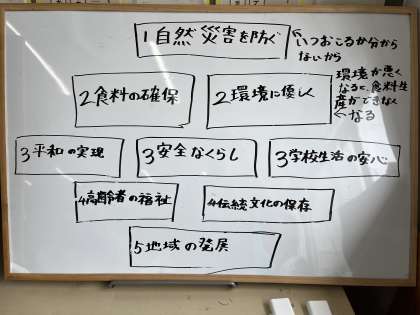 1自然災害を防ぐ
いつおこるか分から
ないから
2食料の確保
2環境に優しく
環境が悪く
なると、食料生
産ができなく
なる
3平和の実現
3安全なくらし
3学校生活の安心
4高齢者の福祉
4伝統文化の保存
5地域の発展